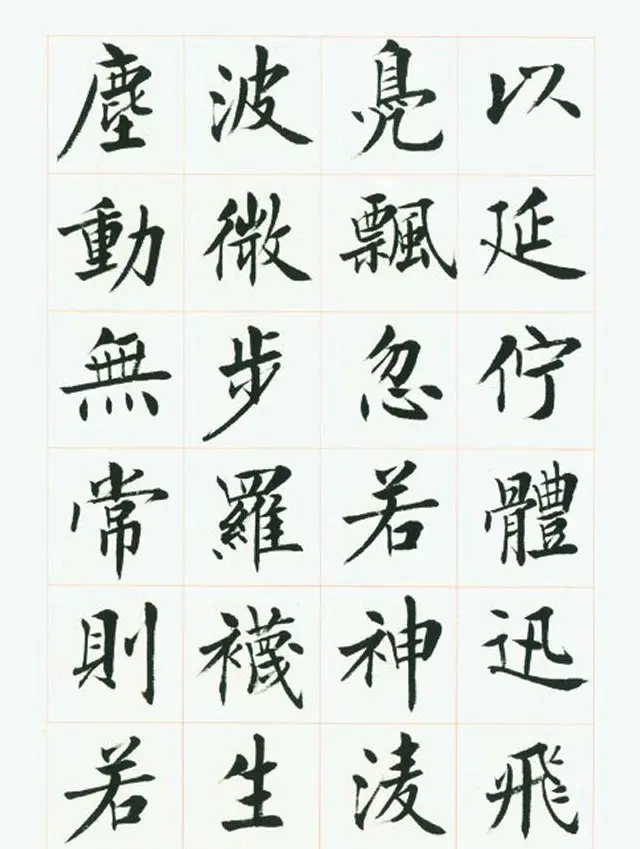 以延佇體迅飛
鳧飄忽若神淩
波微步羅襪生
塵動無常則若